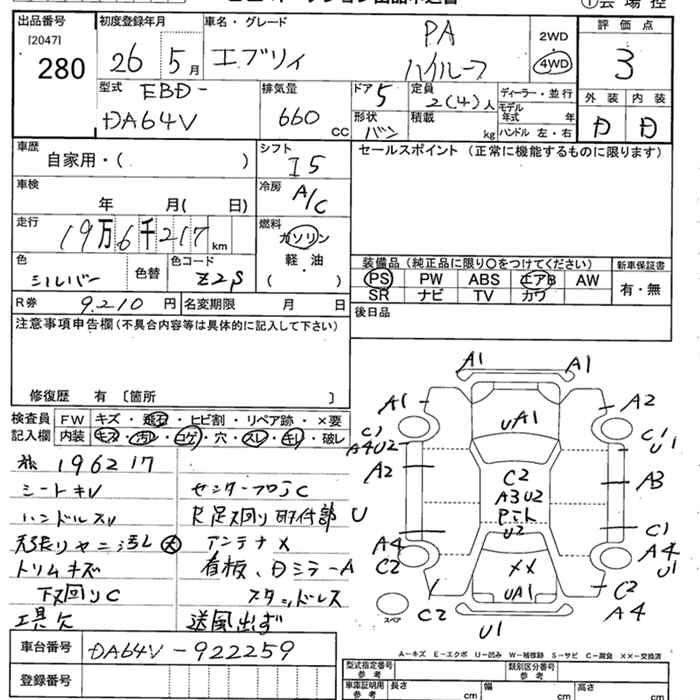 出品番号
[2047]
280
初度登録年月
26 5月
車名・グレード
エブリィ
PA
ハイルーフ
2WD
4WD
評価点
3
外装 内装
D D
型式
EBD-
DA64V
排気量
660 cc
ドア 5
形状 バン
定員 2(4)人
積載 kg
ディーラー・並行
モデル年式 年
ハンドル 左・右
車歴
自家用・( )
シフト
I5
セールスポイント (正常に機能するものに限ります)
車検
年 月( 日)
冷房
A/C
走行
19万6千217km
燃料
ガソリン
軽・油
( )
色
シルバー
色替
色コード
Z2S
装備品 (純正品に限り〇をつけてください)
新車保証書
PS PW ABS エアB AW
SR ナビ TV カワ
有・無
R券 9,210円
名変期限 月 日
後日品
注意事項申告欄 (不具合内容等は具体的に記入して下さい)
修復歴 有 〔箇所 〕
検査員記入欄
FW キズ・飛石・ヒビ割・リペア跡・×要
内装 キズ・汚レ・コゲ・穴・スレ・キレ・破レ
196217
シートキV
センターフロアC
ハンドルスV
足廻り取付部 U
天張りヤニ汚レ大
アンテナ×
トリムキズ
看板、DミラーA
下廻りC
スタッドレス
工具欠
送風出ず
A1 A1
A1 A2
UA1
C1 C1
A4U2 U1
A2 A3
C2
A3U2
U2
C1
A4 A4
C2 U1
XX
UA1
C2
A4
スペア
C2
U1
車台番号
DA64V-922259
登録番号
A-キズ E-エクボ U-凹み W-補修跡 S-サビ C-腐食 XX-交換済
型式指定番号 参考
類別区分番号 参考
車庫証明用 参考
長さ cm 幅 cm 高さ cm